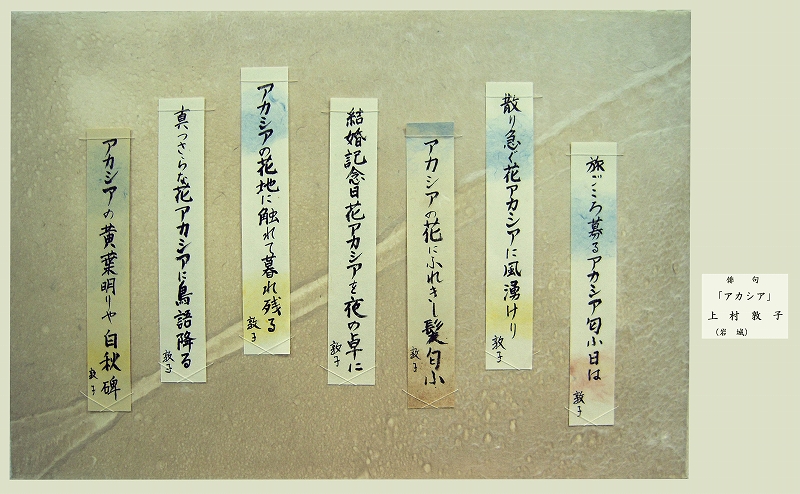 旅ごころ募るアカシア匂ふ日は
敦子
散り急ぐ花アカシアに風湧けり
敦子
アカシアの花にふれきし髪匂ふ
敦子
結婚記念日花アカシアを夜の卓に
敦子
アカシアの花地に触れて暮れ残る
敦子
真っさらな花アカシアに鳥語降る
敦子
アカシアの黄葉明りや白秋碑
敦子
俳句
「アカシア」
上村敦子
(岩城)